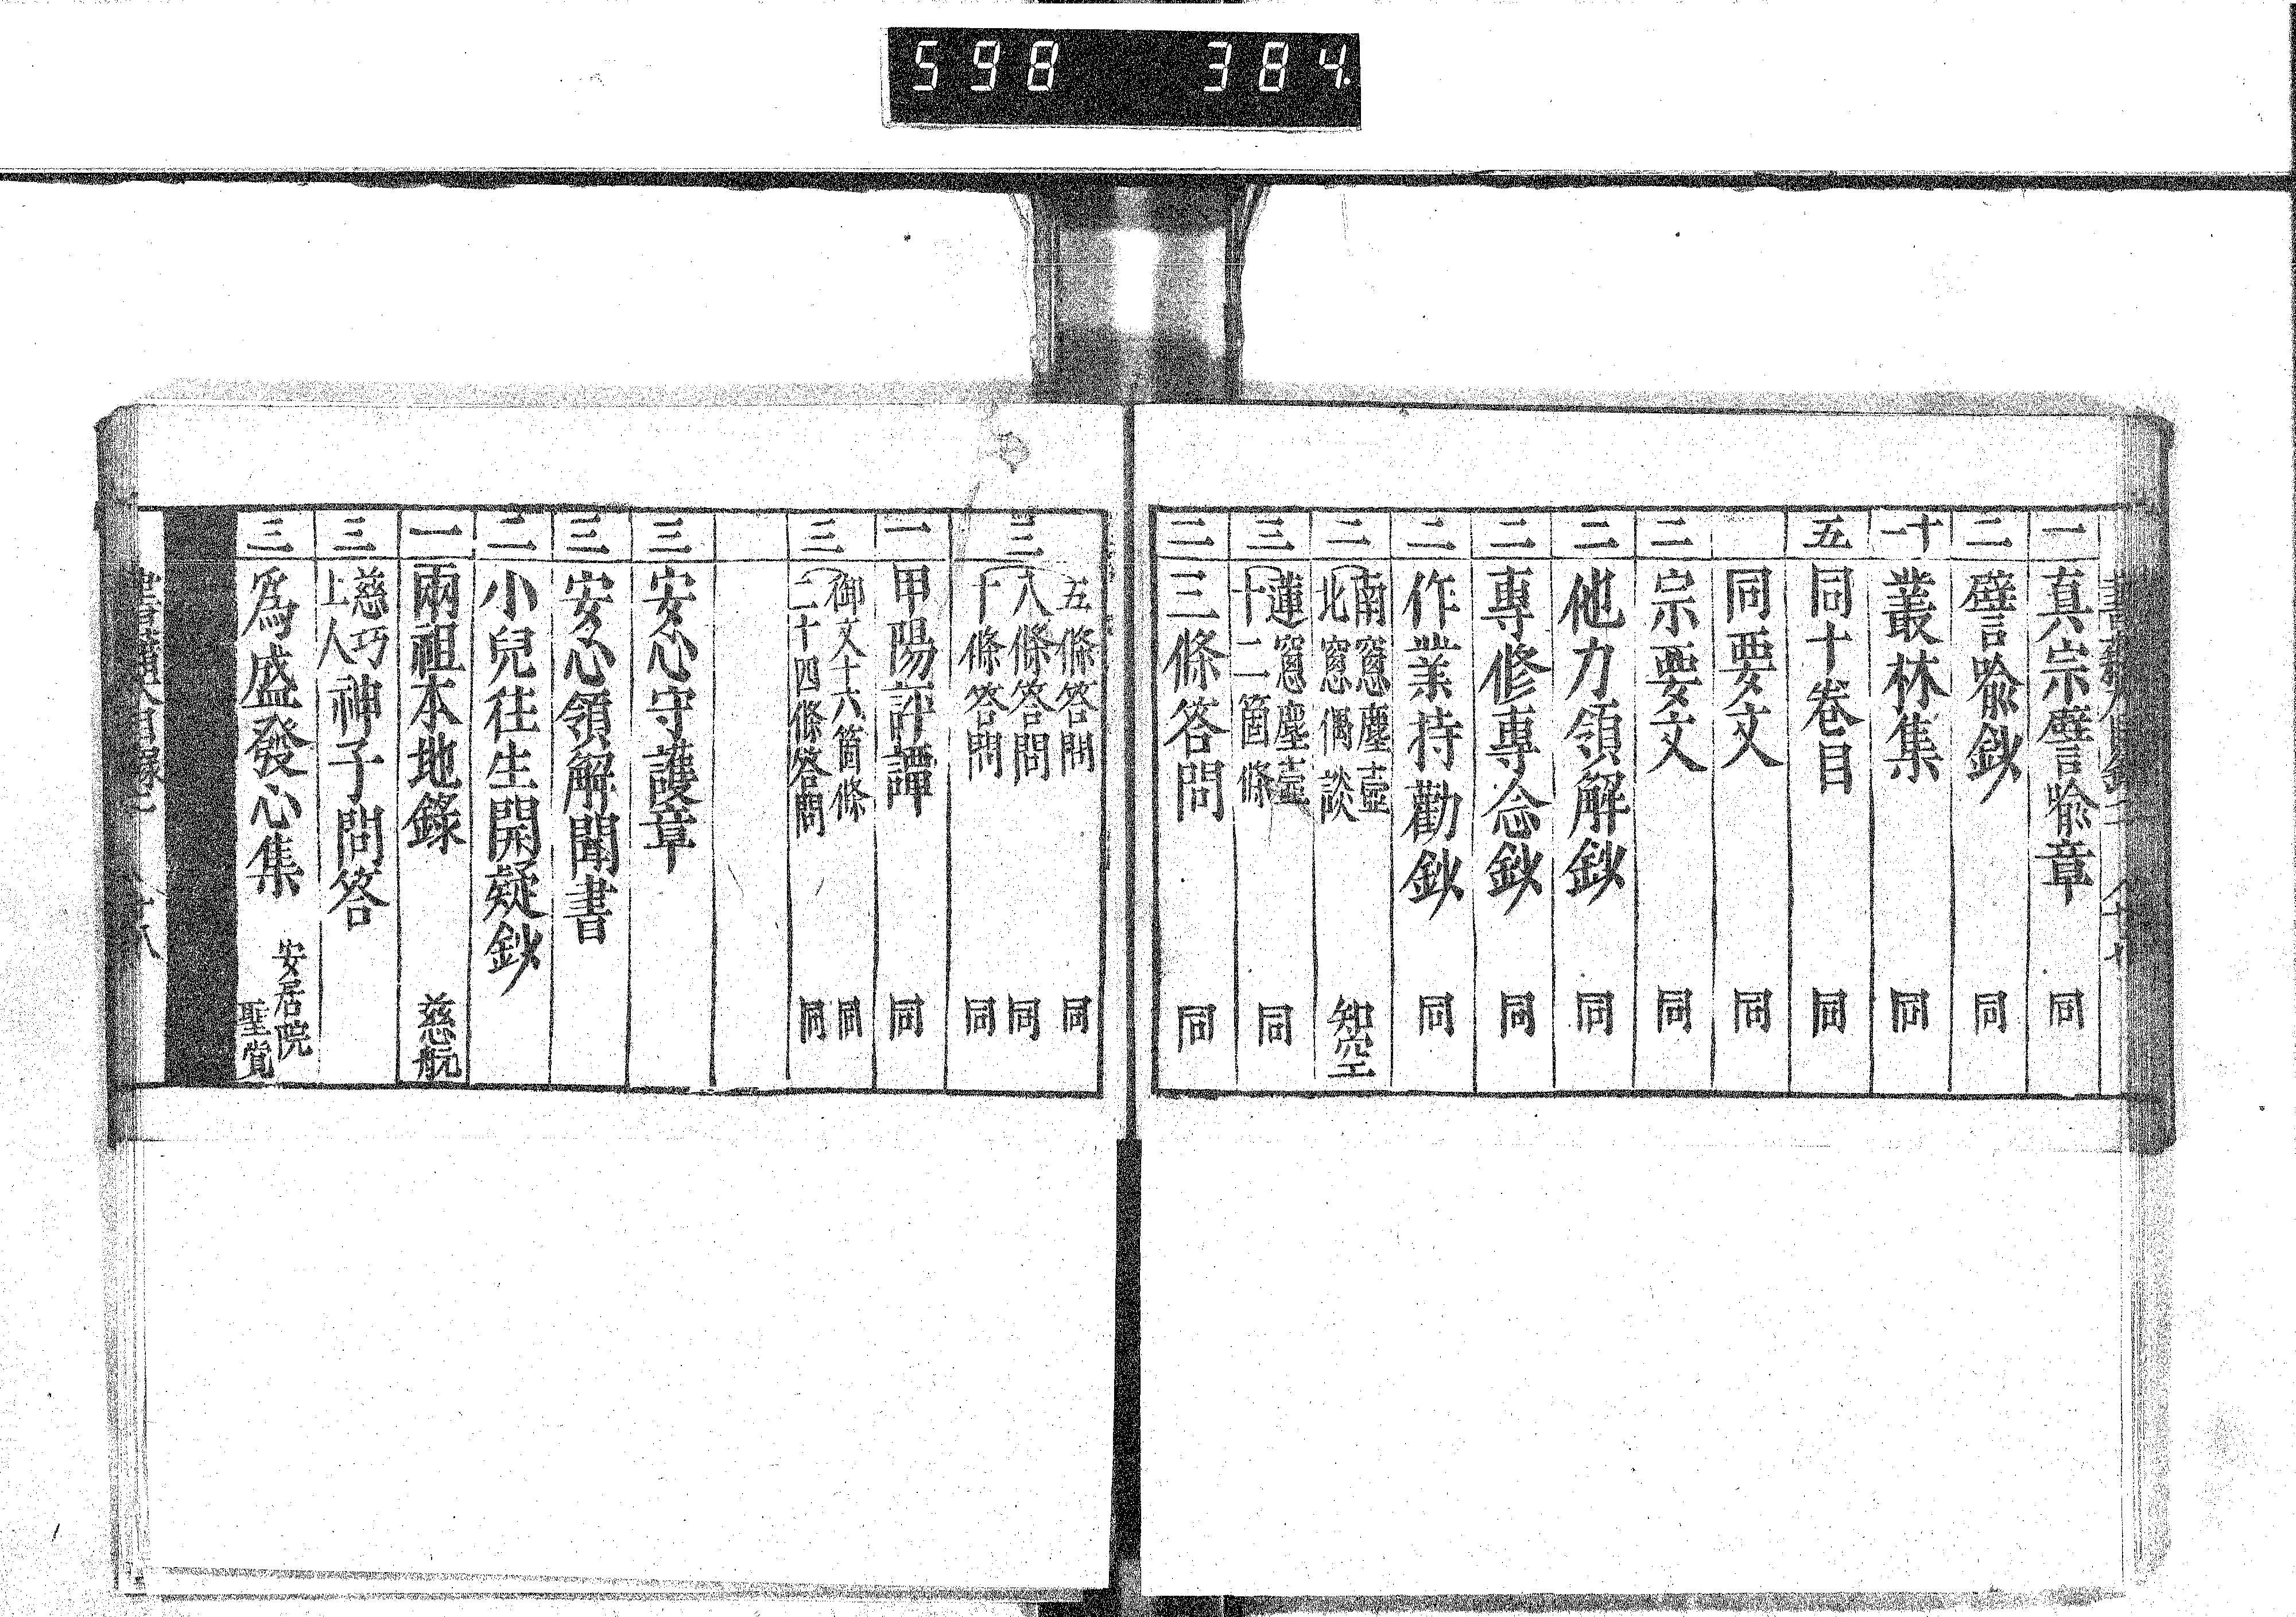 598 384.
一 真宗譬喩章 同
二 譬喩鈔 同
十一 叢林集 同
五 同十卷目 同
同要文 同
二 宗要文 同
二 他力領解鈔 同
二 專修專念鈔 同
二 作業持勸鈔 同
二 南窓塵壺
北窓偶談 知空
三 蓮窓塵壺
十二箇條 同
三 三條答問 同
三 五條答問 同
八條答問 同
十條答問 同
一 甲陽評譚 同
三 御文十六箇條 同
二十四條答問 同
三 安心守護章
三 安心領解聞書
二 小兒往生開疑鈔
一 兩祖本地錄 慈航
三 慈巧上人神子問答
三 爲盛發心集 安居院聖覚